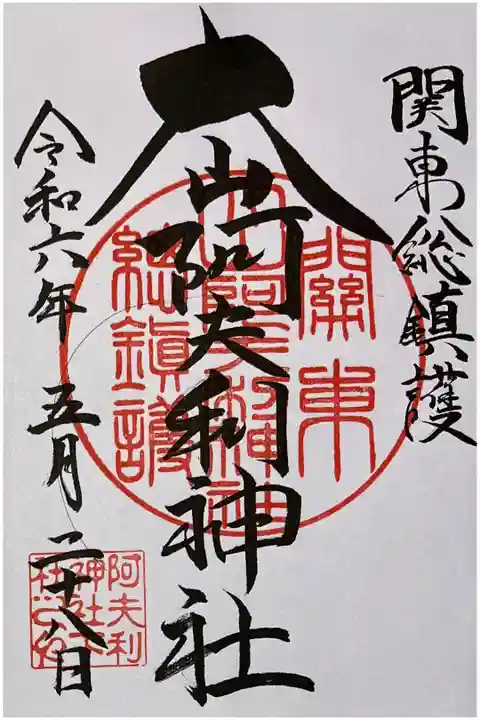 関東総鎮護
大山阿夫利神社
令和六年 五月 二十八日
關東
大山阿夫利神社
總鎮護
阿夫利
神社下
社